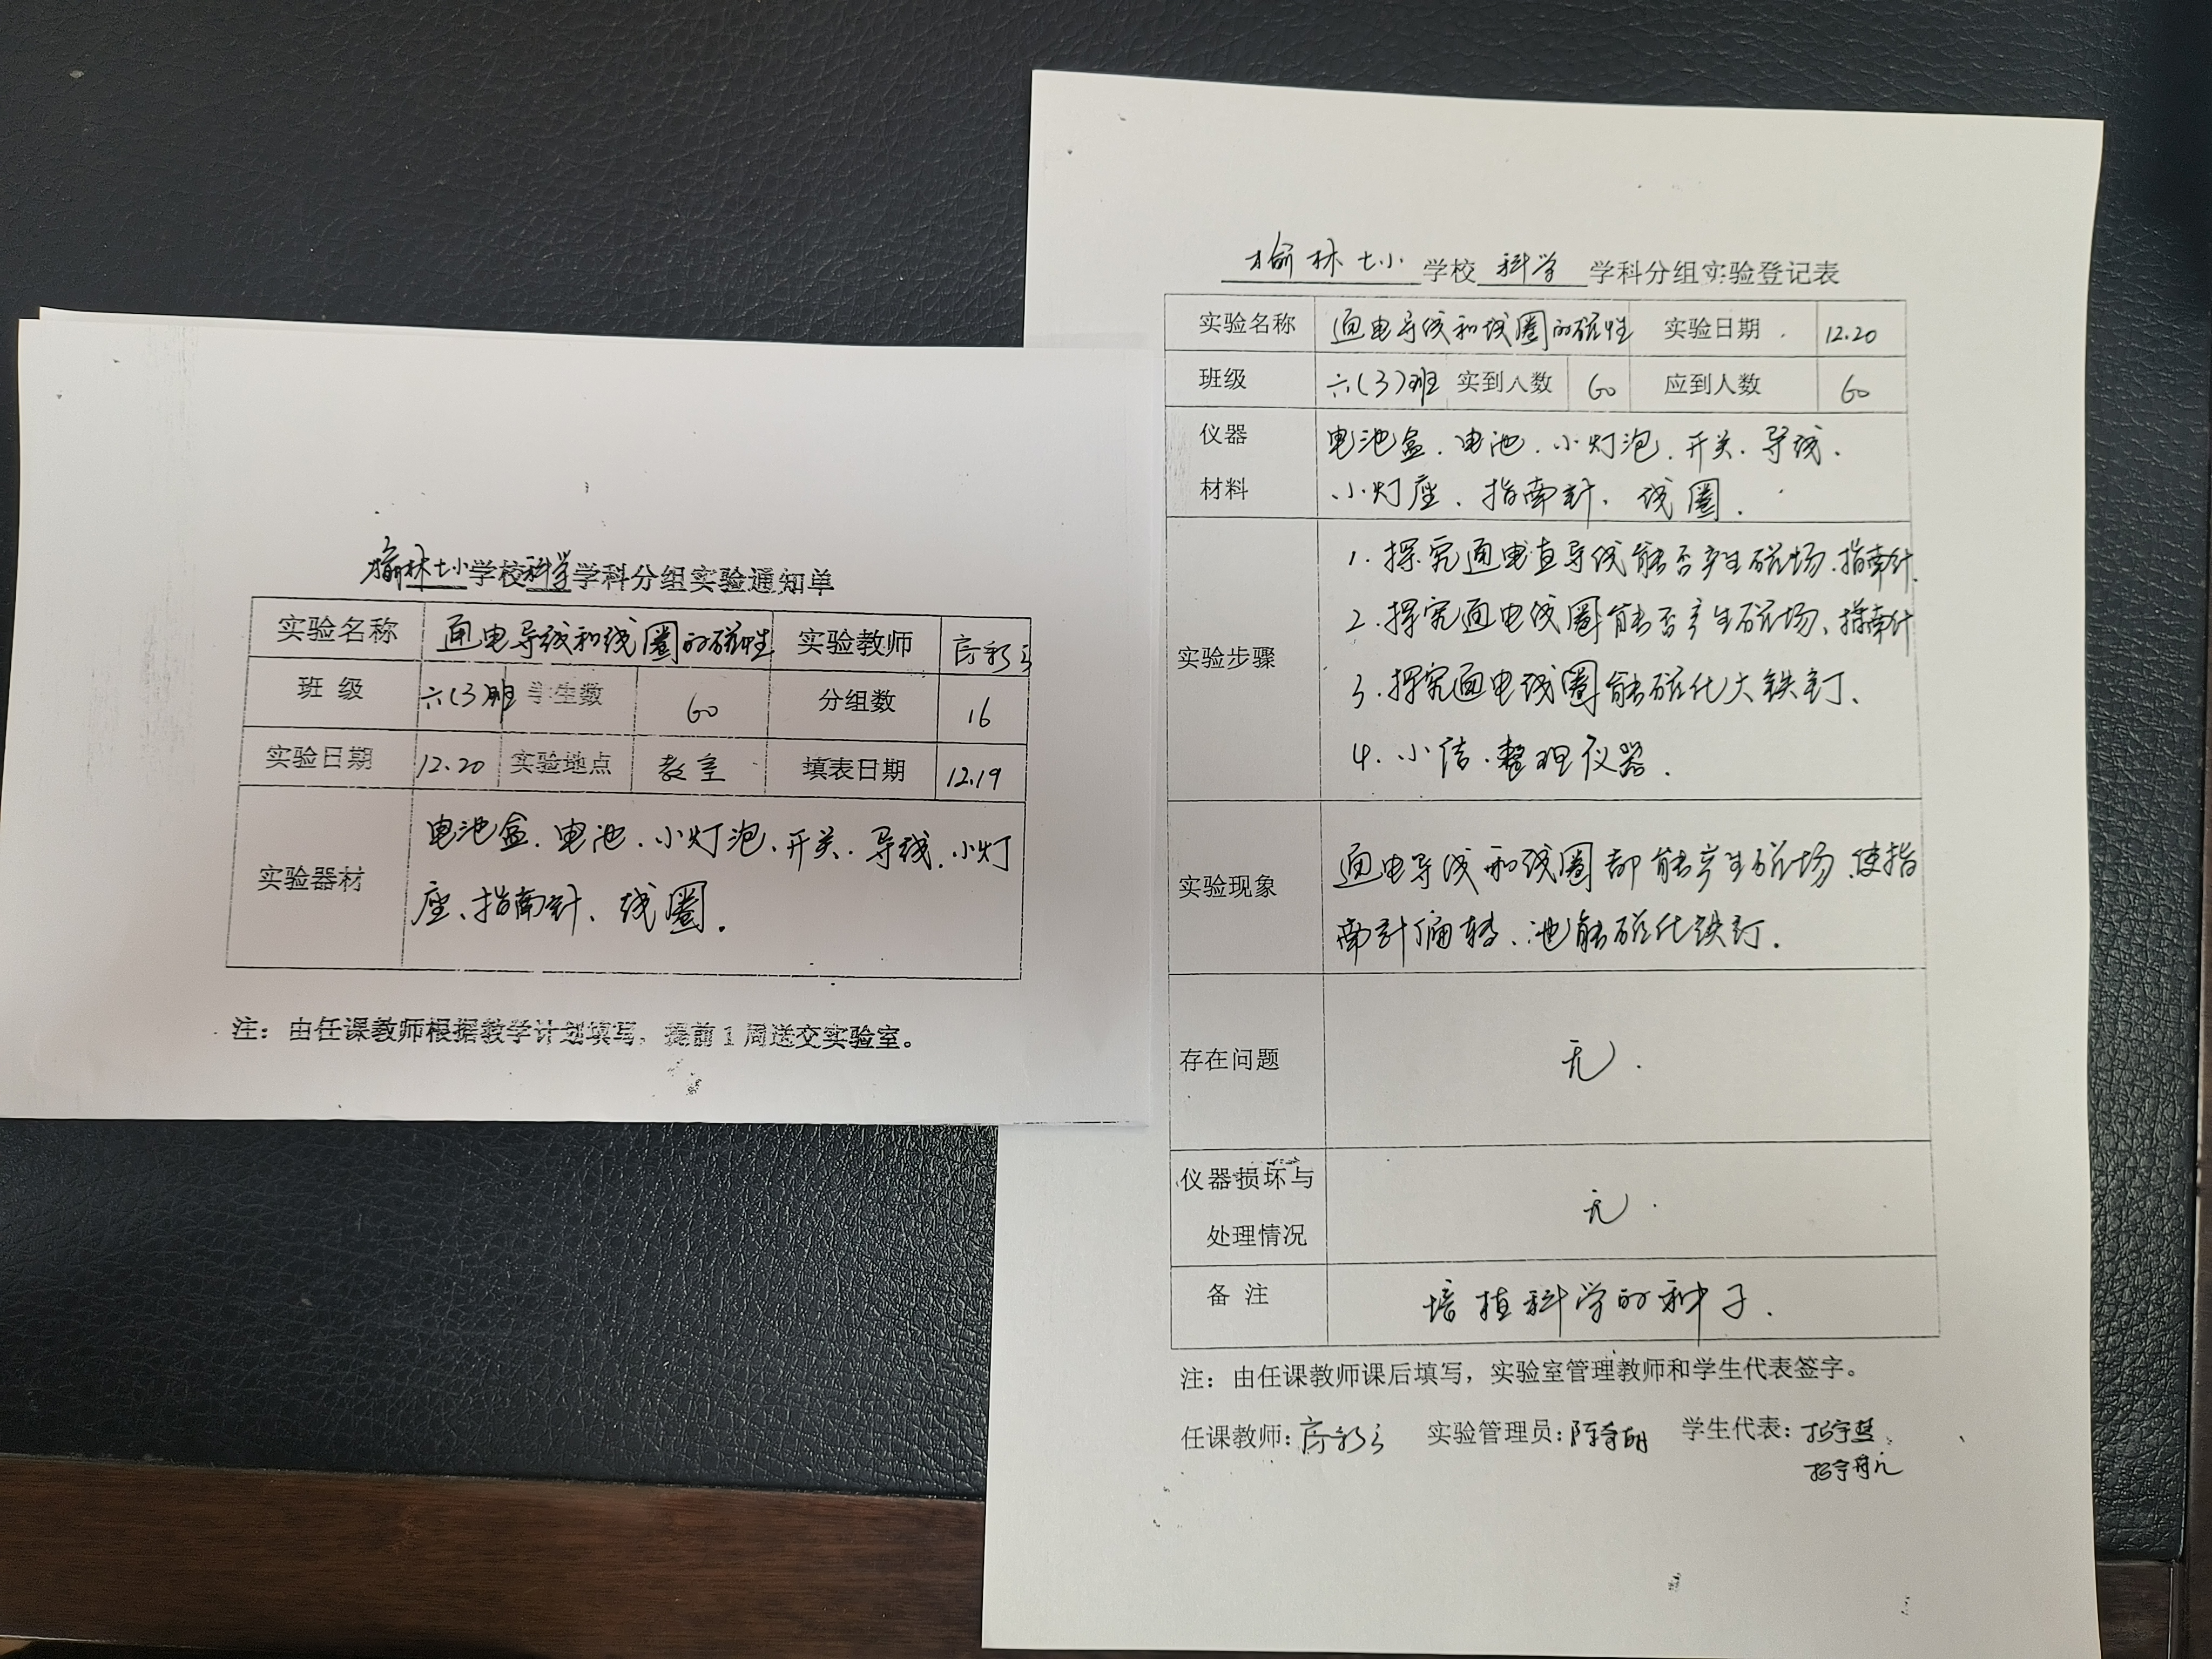 榆林七小学校科学学科分组实验通知单
实验名称 通电导线和线圈的磁性 实验教师
班 级 六(3)班 学生数 60 分组数 16
实验日期 12.20 实验地点 教室 填表日期 12.19
实验器材 电池盒、电池、小灯泡、开关、导线、小灯
座、指南针、线圈.
注：由任课教师根据教学计划填写，提前1周送交实验室。
榆林七小学校 科学 学科分组实验登记表
实验名称 通电导线和线圈的磁性 实验日期 12.20
班级 六(3)班 实到人数 60 应到人数 60
仪器 电池盒、电池、小灯泡、开关、导线、
材料 小灯座、指南针、线圈.
1.探究通电直导线能否产生磁场.指南针.
2.探究通电线圈能否产生磁场、指南针
实验步骤
3.探究通电线圈能磁化大铁钉、
4.小结.整理仪器.
通电导线和线圈都能产生磁场.使指
实验现象
南针偏转、也能磁化铁钉.
存在问题 无.
仪器损坏与
处理情况 无.
备 注 培植科学的种子.
注：由任课教师课后填写，实验室管理教师和学生代表签字。
任课教师: 实验管理员: 学生代表: